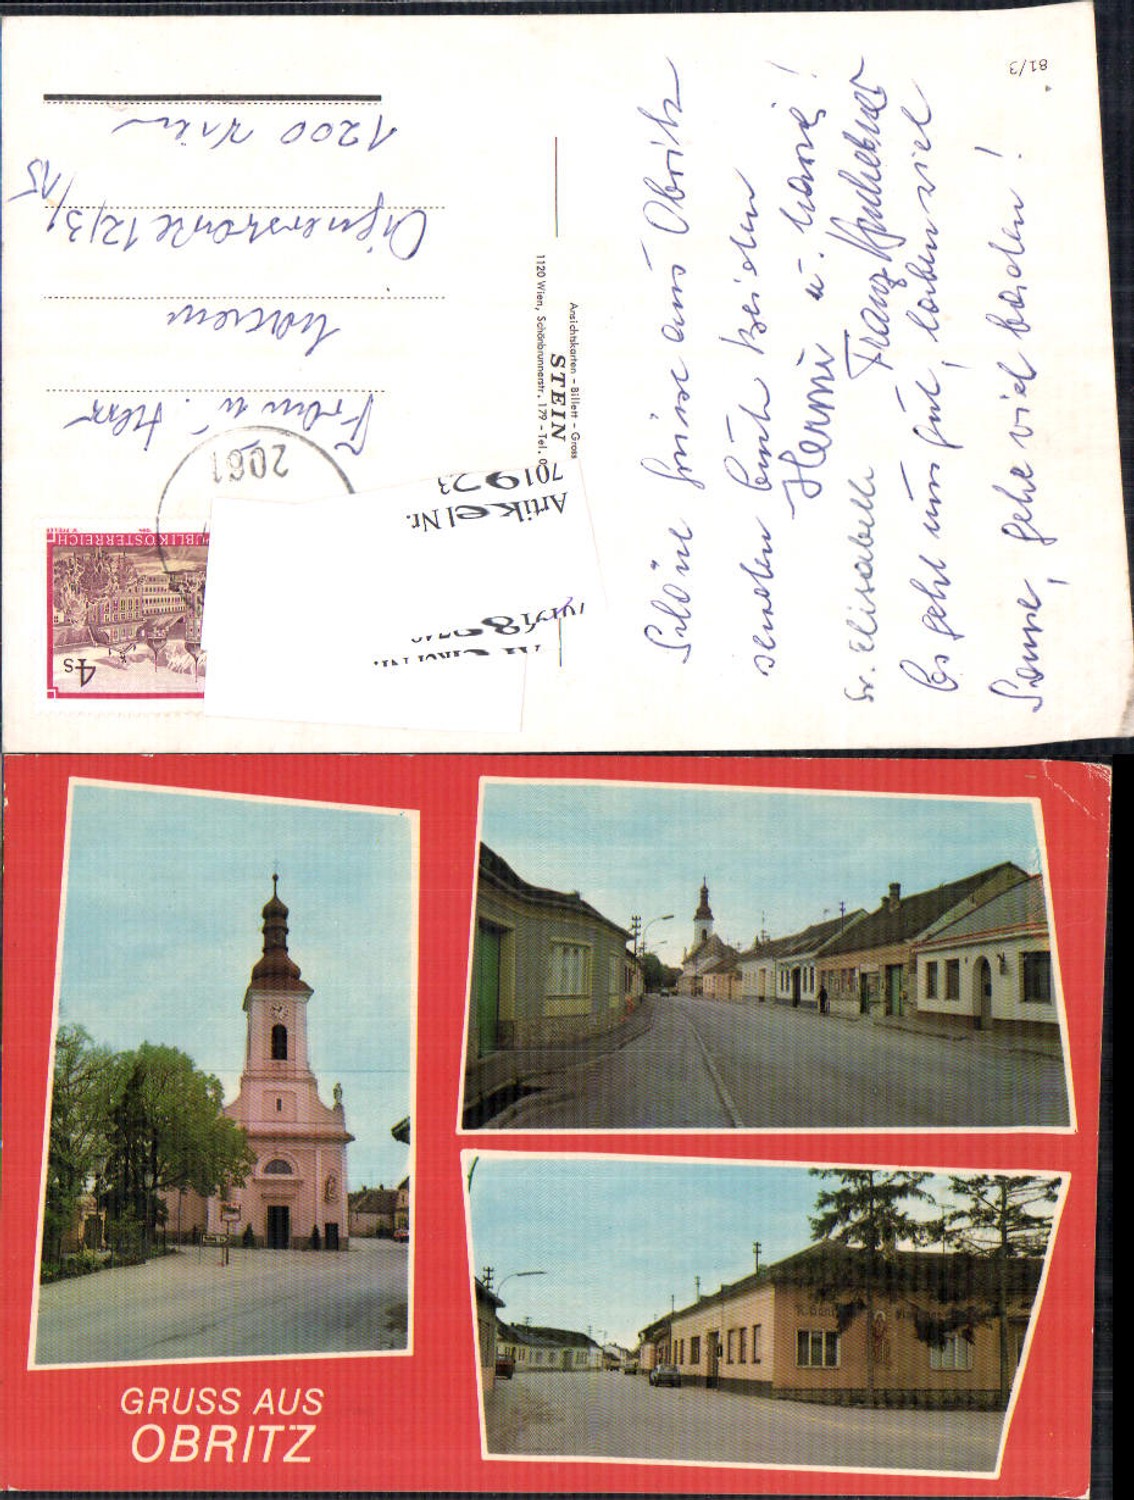 81/3
Schöne Grüße aus Obritz
senden Euch beiden
Hermi u. Hansi!
Franz
Sr. Elisabeth
Es geht uns gut, haben viel
Sonne, gehe viel baden!
Ansichtskarten - Billett - Gross
STEIN
1120 Wien, Schönbrunnerstr. 179 - Tel.
Frau u. Herr
12/3/15
1200 Wien
2061
REPUBLIK ÖSTERREICH
4 S
Artikel Nr.
701923
GRUSS AUS
OBRITZ